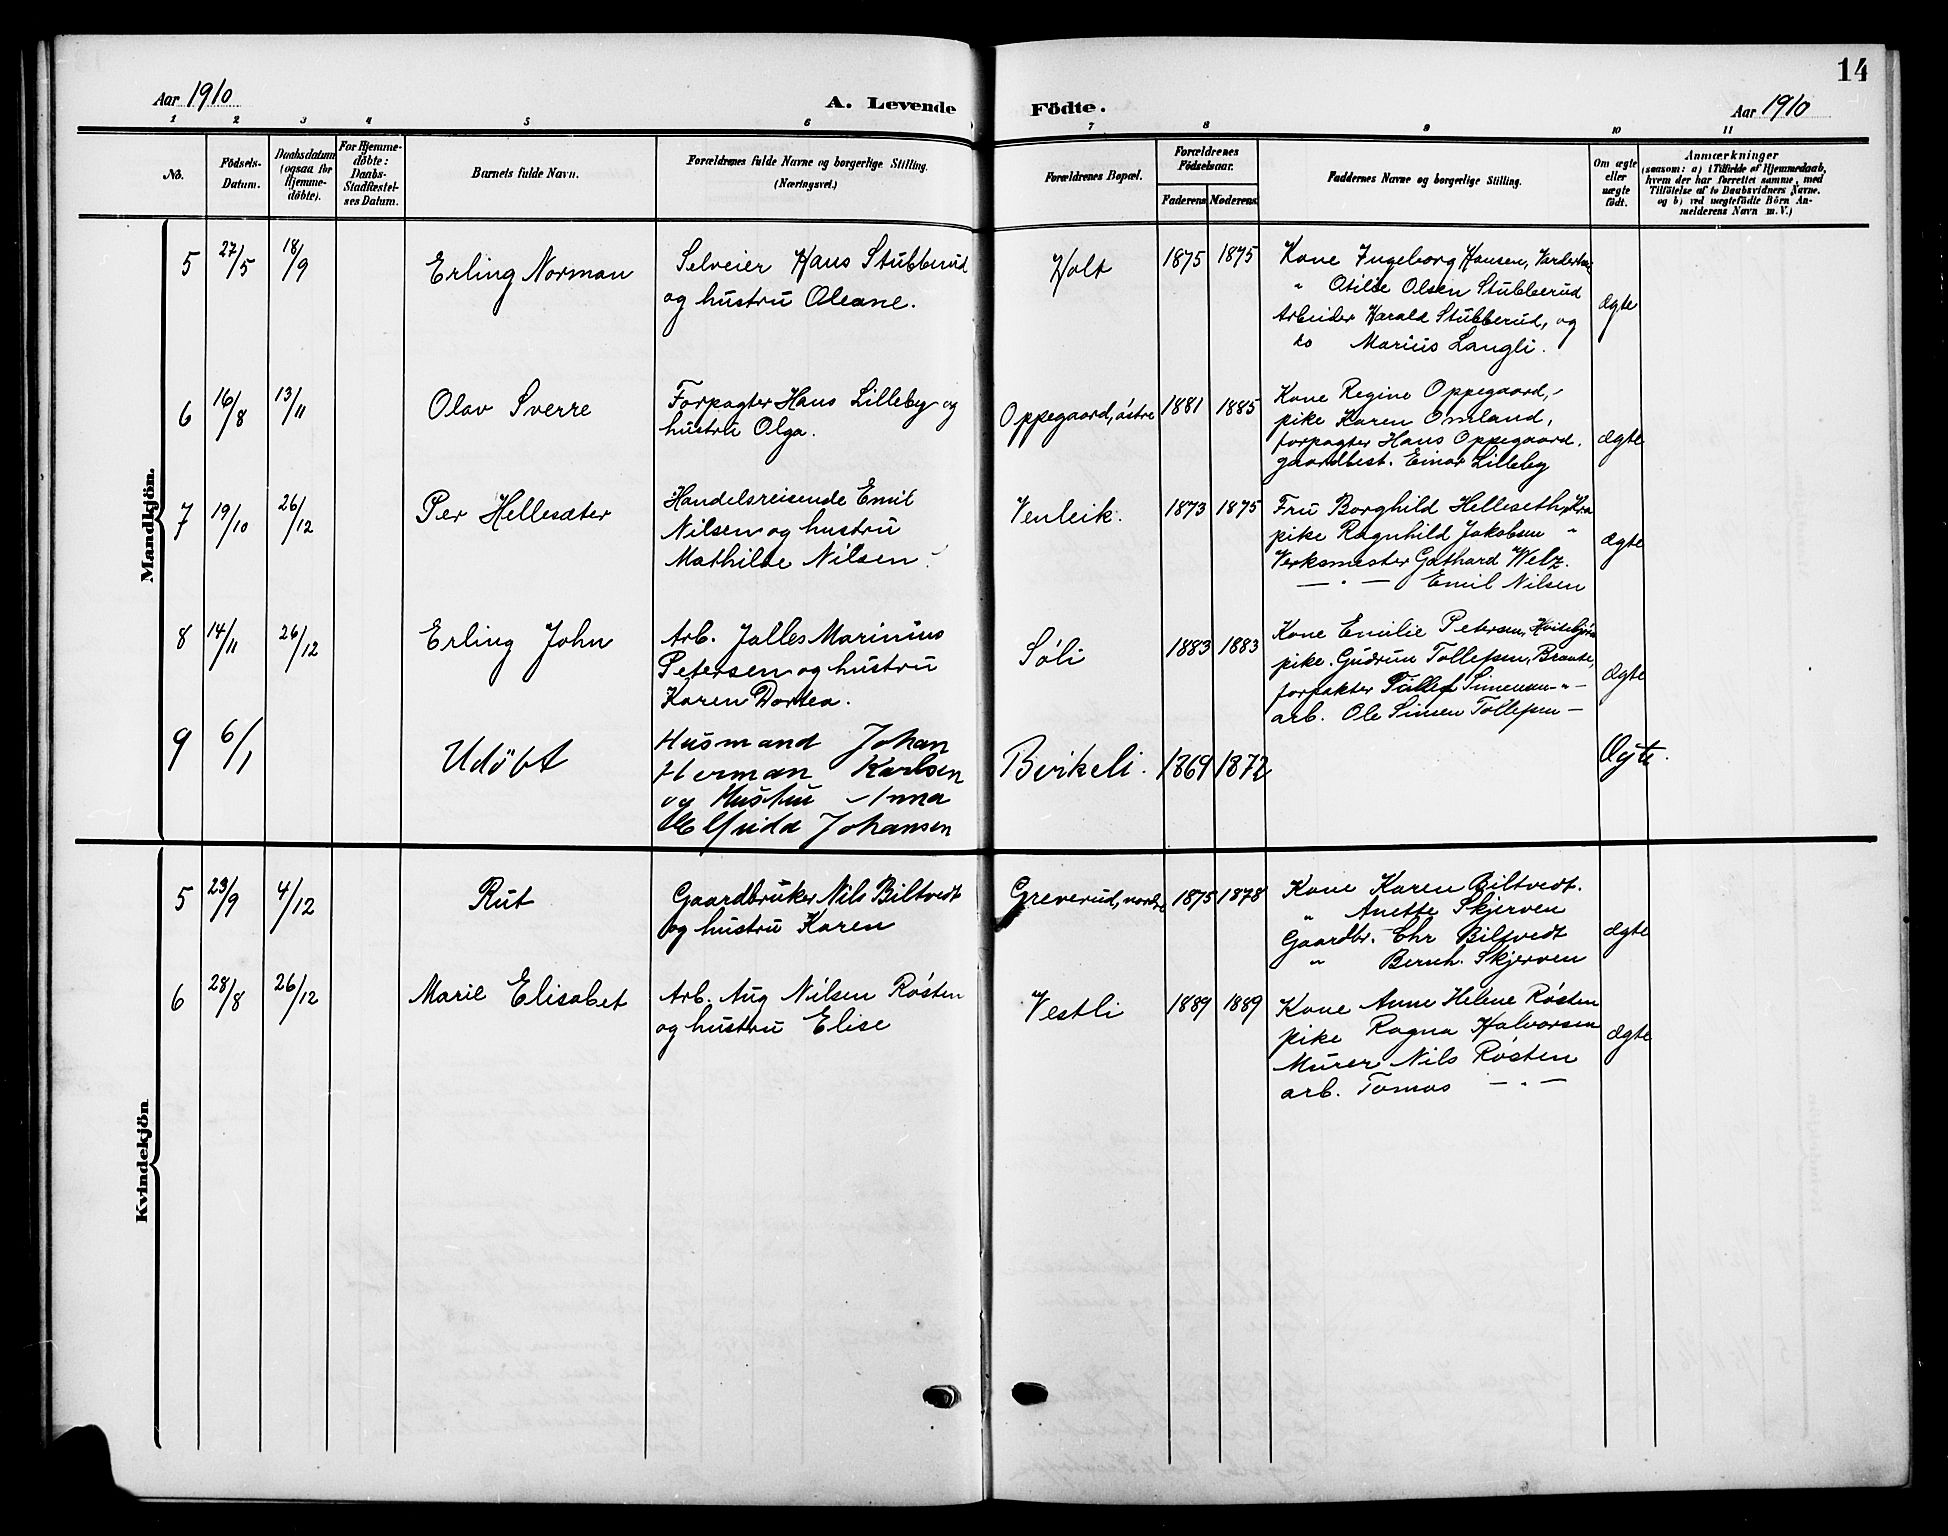 14
Aar 1910
A. Levende Födte.
Aar 1910
1 2 3 4 5 6 7 8 9 10 11
No.
Födsels-
Datum.
Daabsdatum
(ogsaa for
Hjemme-
döbte).
For Hjemme-
döbte:
Daabs-
Stadfæstel-
ses Datum.
Barnets fulde Navn.
Forældrenes fulde Navne og borgerlige Stilling.
(Næringsvei.)
Forældrenes Bopæl.
Forældrenes
Födselsaar.
Faderens Moderens
Faddernes Navne og borgerlige Stilling.
Om ægte
eller
uægte
födt.
Anmærkninger
(saasom: a) i Tilfælde af Hjemmedaab,
hvem der har forrettet samme, med
Tilföielse af to Daabsvidners Navne.
og b) ved uægtefödte Börn An-
melderens Navn m. V.)
Mandkjön.
5 27/5 18/9 Erling Norman
Selveier Hans Stubberud
og hustru Oleane.
Holt 1875 1875
Kone Ingeborg Hansen,
" Otilie Olsen Stubberud
Arbeider Harald Stubberud, og
do Marius Langli.
ægte
6 16/8 13/11 Olav Sverre
Forpagter Hans Lilleby og
hustru Olga.
Oppegaard, østre 1881 1885
Kone Regine Oppegaard,
pike Karen Omland,
forpagter Hans Oppegaard.
gaardbest. Einar Lilleby
ægte
7 19/10 26/12 Per Hellesæter
Handelsreisende Emil
Nilsen og hustru
Mathilde Nilsen.
Venleik. 1873 1875
Fru Borghild Helleseth, Kra
pike Ragnhild Jakobsen "
Verksmester Gothard Welz.
— " — Emil Nilsen
ægte
8 14/11 26/12 Erling John
Arb. Jalles Marinius
Petersen og hustru
Karen Dortea.
Søli 1883 1883
Kone Emilie Petersen,
pike. Gudrun Tollefsen, Braate,
forpakter Tollef Simensen - " -
arb. Ole Simen Tollefsen —
ægte
9 6/1 Udöbt
Husmand Johan
Herman Karlsen
og Hustru Anna
Elfrida Johansen
Birkeli. 1869 1872
Ægte.
Kvindekjön
5 23/9 4/12 Rut
Gaardbruker Nils Biltvedt
og hustru Karen
Greverud, nordre 1875 1878
Kone Karen Biltvedt.
" Anette Skjerven
Gaardbr. Chr Biltvedt
" Bernh. Skjerven
ægte
6 28/8 26/12 Marie Elisabet
Arb. Aug Nilsen Røsten
og hustru Elise
Vestli 1889 1889
Kone Anne Helene Røsten
pike Ragna Halvorsen
Murer Nils Røsten
arb. Tomas — " —
ægte